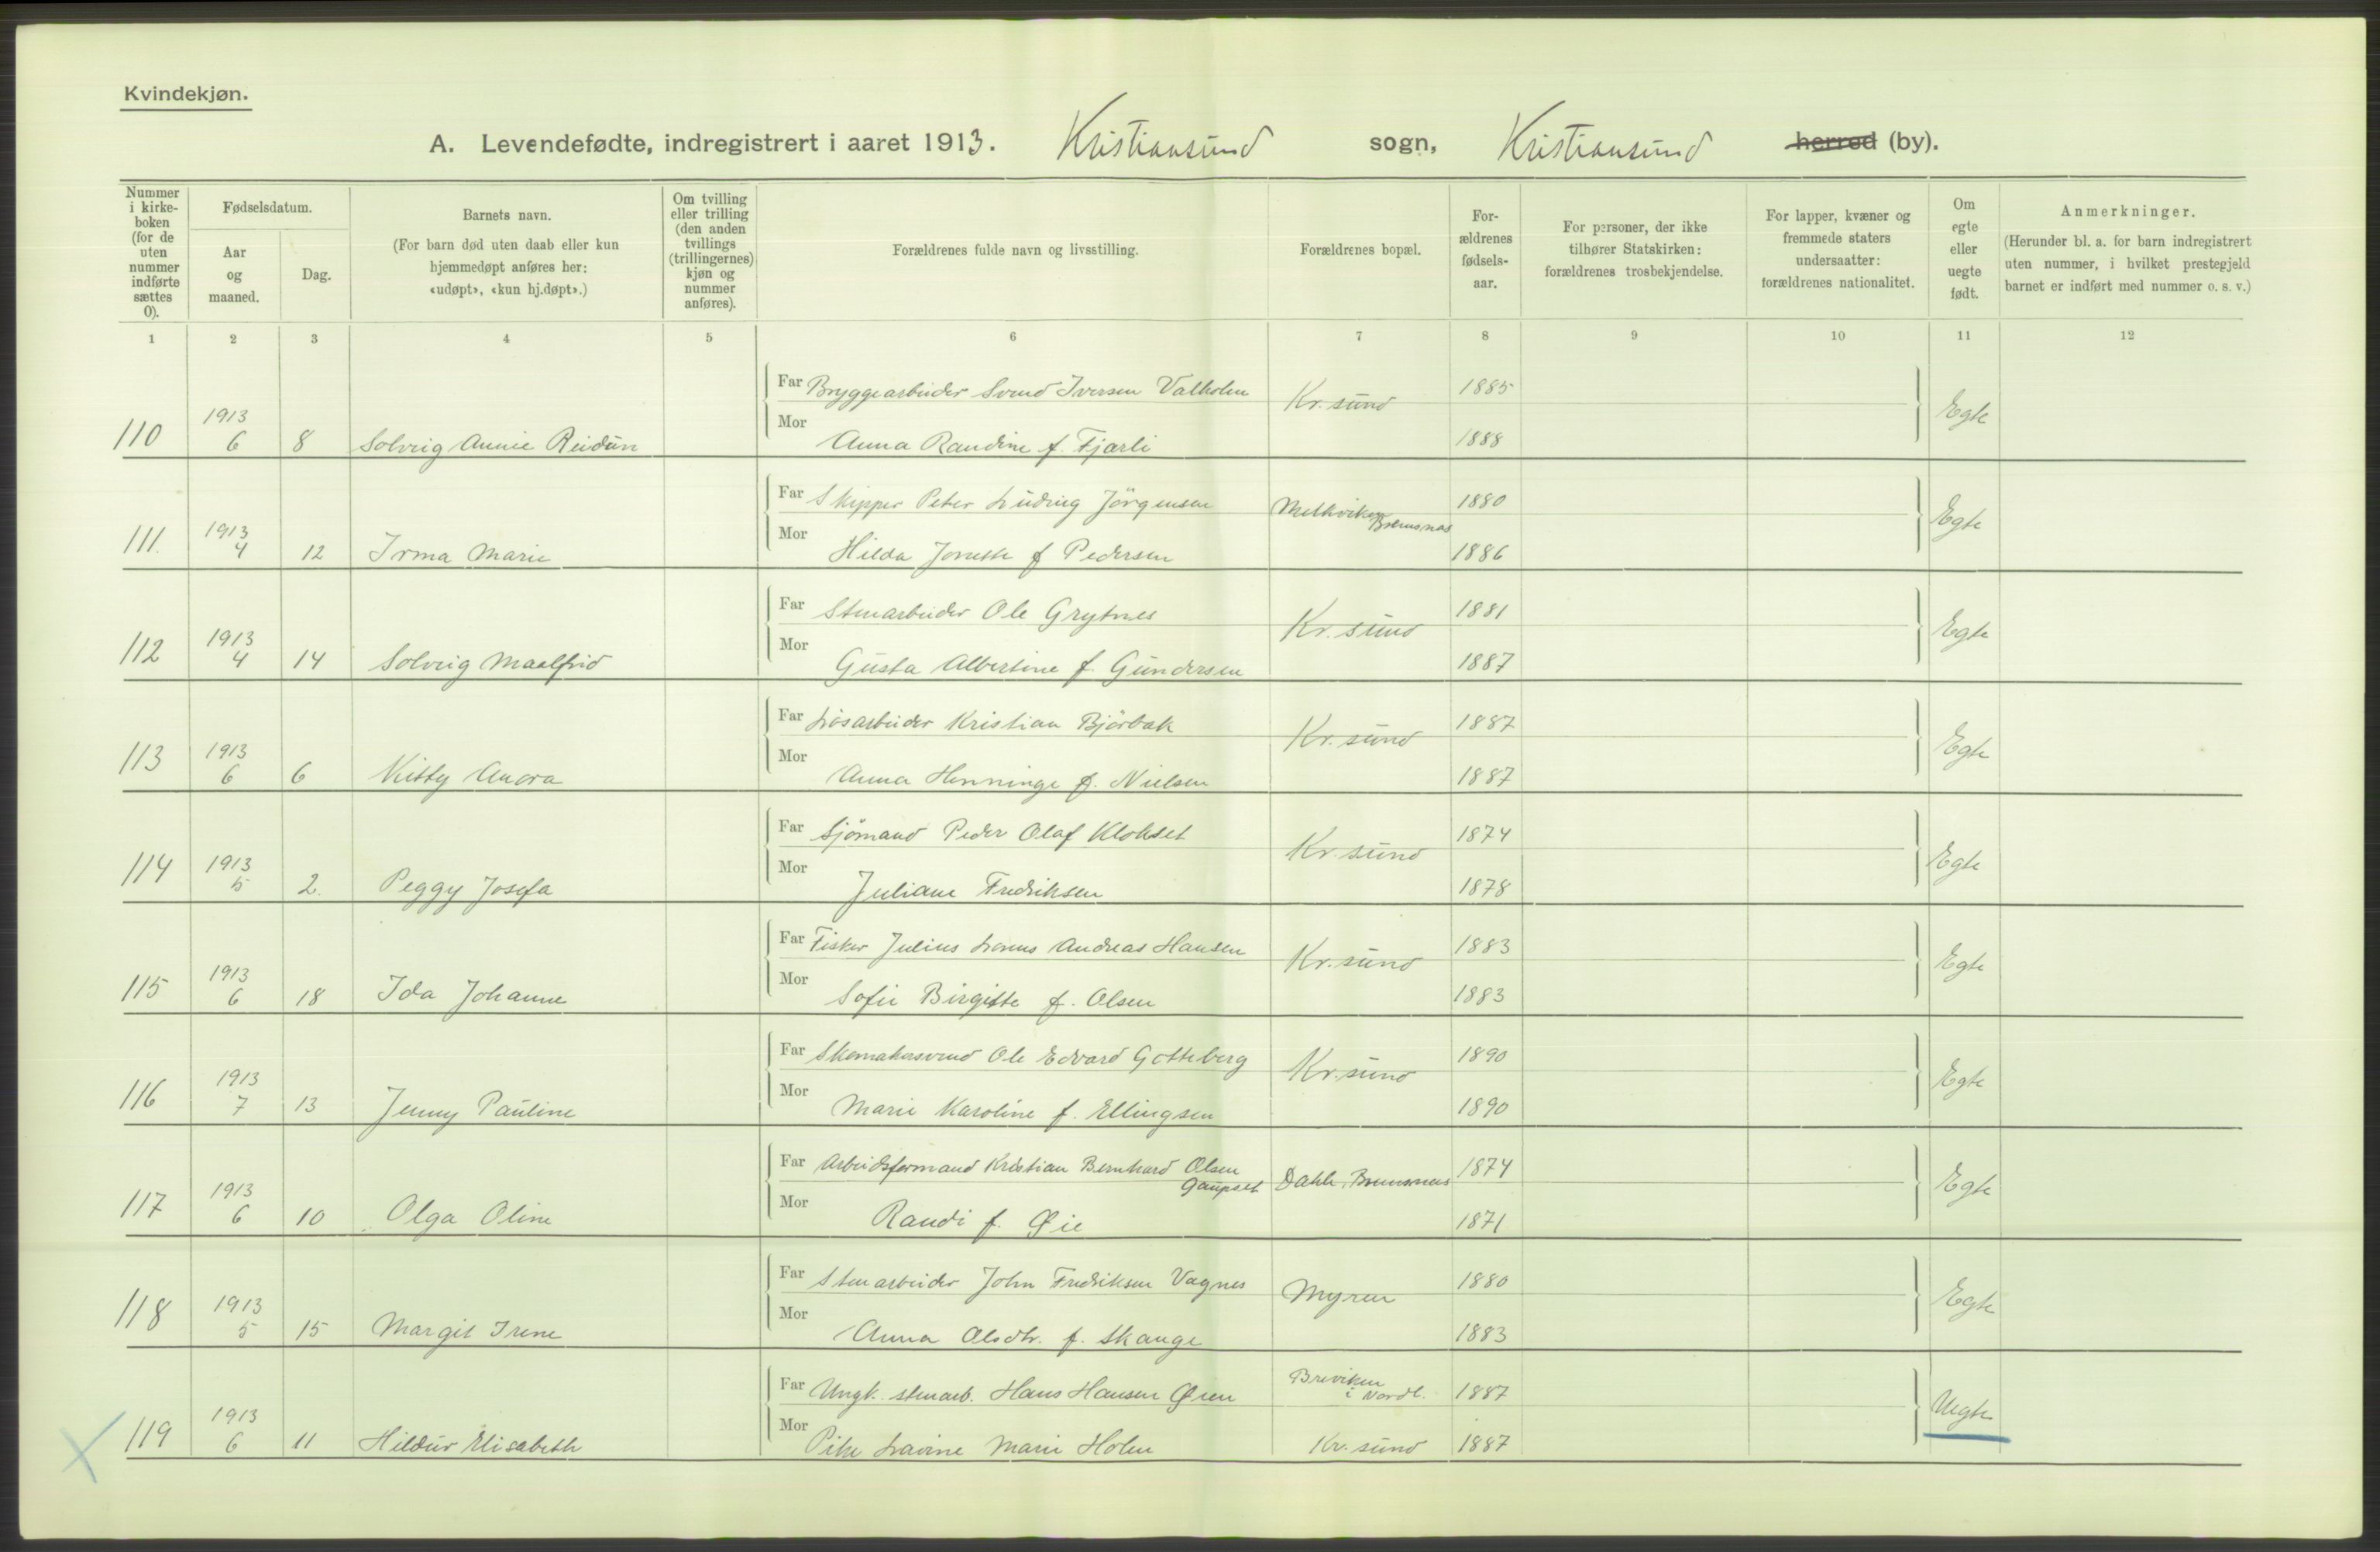 Kvindekjøn.
A. Levendefødte, indregistrert i aaret 1913. Kristiansund sogn, Kristiansund herred (by).
Nummer i kirkeboken (for de uten nummer indførte sættes 0).
Fødselsdatum.
Aar og maaned.
Dag.
Barnets navn.
(For barn død uten daab eller kun hjemmedøpt anføres her: «udøpt», «kun hj.døpt».)
Om tvilling eller trilling (den anden tvillings (trillingernes) kjøn og nummer anføres).
Forældrenes fulde navn og livsstilling.
Forældrenes bopæl.
Forældrenes fødselsaar.
For personer, der ikke tilhører Statskirken: forældrenes trosbekjendelse.
For lapper, kvæner og fremmede staters undersaatter: forældrenes nationalitet.
Om egte eller uegte født.
Anmerkninger.
(Herunder bl. a. for barn indregistrert uten nummer, i hvilket prestegjeld barnet er indført med nummer o. s. v.)
1 2 3 4 5 6 7 8 9 10 11 12
Far Bryggearbeider Svend Iversen Valholm Kr.sund 1885
110 1913 6 8 Solveig Annie Reidun Egte
Mor Anna Randine f. Fjærli 1888
Far Skipper Peter Ludvig Jörgensen Melkviken Bremsnæs 1880
111. 1913 4 12 Irma Marie Egte
Mor Hilda Jonette f Pedersen 1886
Far Stenarbeider Ole Grytnes Kr.sund 1881
112 1913 4 14 Solveig Maalfrid Egte
Mor Gusta Albertine f. Gundersen 1887
Far Lösarbeider Kristian Björbak Kr.sund 1887
113 1913 6 6 Kitty Anora Egte
Mor Anna Henninge f. Nielsen 1887
Far Sjömand Peder Olaf Klokset Kr.sund 1874
114 1913 5 2. Peggy Josefa Egte
Mor Juliane Fredriksen 1878
Far Fisker Julius Andreas Hansen Kr.sund 1883
115 1913 6 18 Ida Johanne Egte
Mor Sofie Birgitte f. Olsen 1883
Far Skomakersvend Ole Edvard Gotteberg Kr.sund 1890
116 1913 7 13 Jenny Pauline Egte
Mor Marie Karoline f. Ellingsen 1890
Far Arbeidsformand Kristian Bernhard Olsen Gaupset Dahle, Bremsnæs 1874
117 1913 6 10 Olga Oline Egte
Mor Randi f. Øie 1871
Far Stenarbeider John Fredriksen Vagnes Myren 1880
118 1913 5 15 Margit Irene Egte
Mor Anna Olsdtr. f. Skauge 1883
Far Ungk. stenarb. Hans Hansen Øien Breviken i Nordl. 1887
119 1913 6 11 Hildur Elisabeth Uegte
Mor Pike Lavine Marie Holm Kr.sund 1887